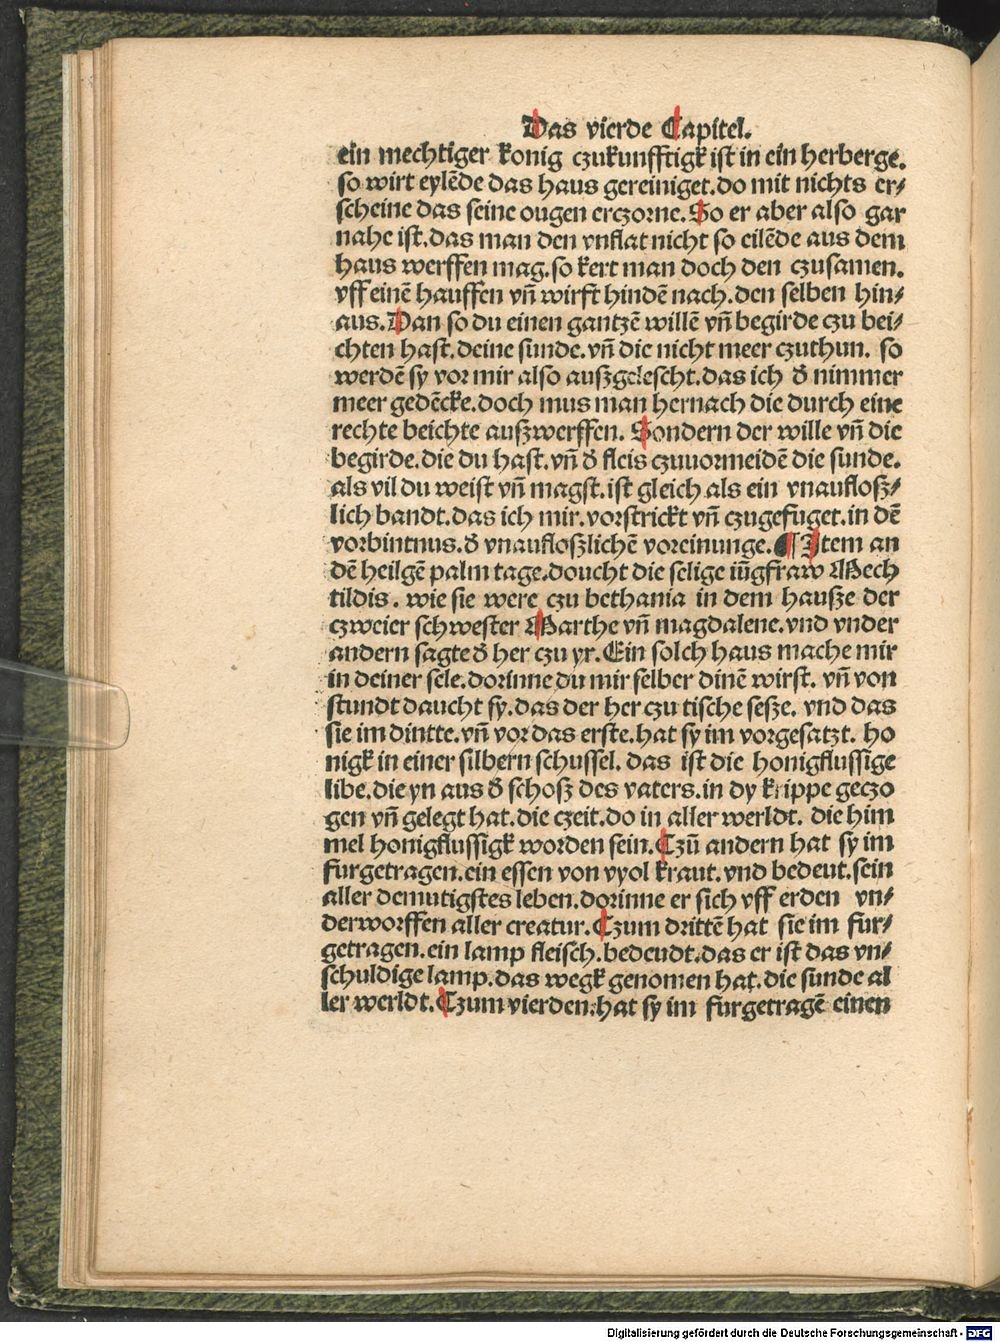 Das vierde Capitel.
ein mechtiger konig czukunfftigk ist in ein herberge.
so wirt eylēde das haus gereiniget.do mit nichts er⸗
scheine das seine ougen erczorne.So er aber also gar
nahe ist.das man den vnflat nicht so eilēde aus dem
haus werffen mag.so kert man doch den czusamen.
vff einē hauffen vn̄ wirft hindē nach.den selben hin⸗
aus.Dan so du einen gantzē willē vn̄ begirde czu bei⸗
chten hast.deine sunde.vn̄ die nicht meer czuthun. so
werdē sy vor mir also außgelescht.das ich đ nimmer
meer gedēcke.doch mus man hernach die durch eine
rechte beichte außwerffen. Sondern der wille vn̄ die
begirde.die du hast.vn̄ đ fleis czuuormeidē die sunde.
als vil du weist vn̄ magst.ist gleich als ein vnaufloß⸗
lich bandt.das ich mir.vorstrickt vn̄ czugefuget.in dē
vorbintnus.đ vnaufloßlichē voreinunge.¶ Item an
dē heilgē palm tage.doucht die selige iūgfraw Mech
tildis. wie sie were czu bethania in dem hauße der
czweier schwester Marthe vn̄ magdalene.vnd vnder
andern sagte đ her czu yr.Ein solch haus mache mir
in deiner sele.dorinne du mir selber dinē wirst. vn̄ von
stundt daucht sy.das der her czu tische seße. vnd das
sie im dintte.vn̄ vor das erste.hat sy im vorgesatzt. ho
nigk in einer silbern schussel. das ist die honigflussige
libe.die yn aus đ schoß des vaters.in dy krippe geczo
gen vn̄ gelegt hat.die czeit.do in aller werldt. die him
mel honigflussigk worden sein.Czū andern hat sy im
furgetragen.ein essen von vyol kraut.vnd bedeut.sein
aller demutigstes leben.dorinne er sich vff erden vn⸗
derworffen aller creatur.Czum drittē hat sie im fur⸗
getragen.ein lamp fleisch.bedeudt.das er ist das vn⸗
schuldige lamp.das wegk genomen hat.die sunde al
ler werldt.Czum vierden.hat sy im furgetragē einen
Digitalisierung gefördert durch die Deutsche Forschungsgemeinschaft - DFG